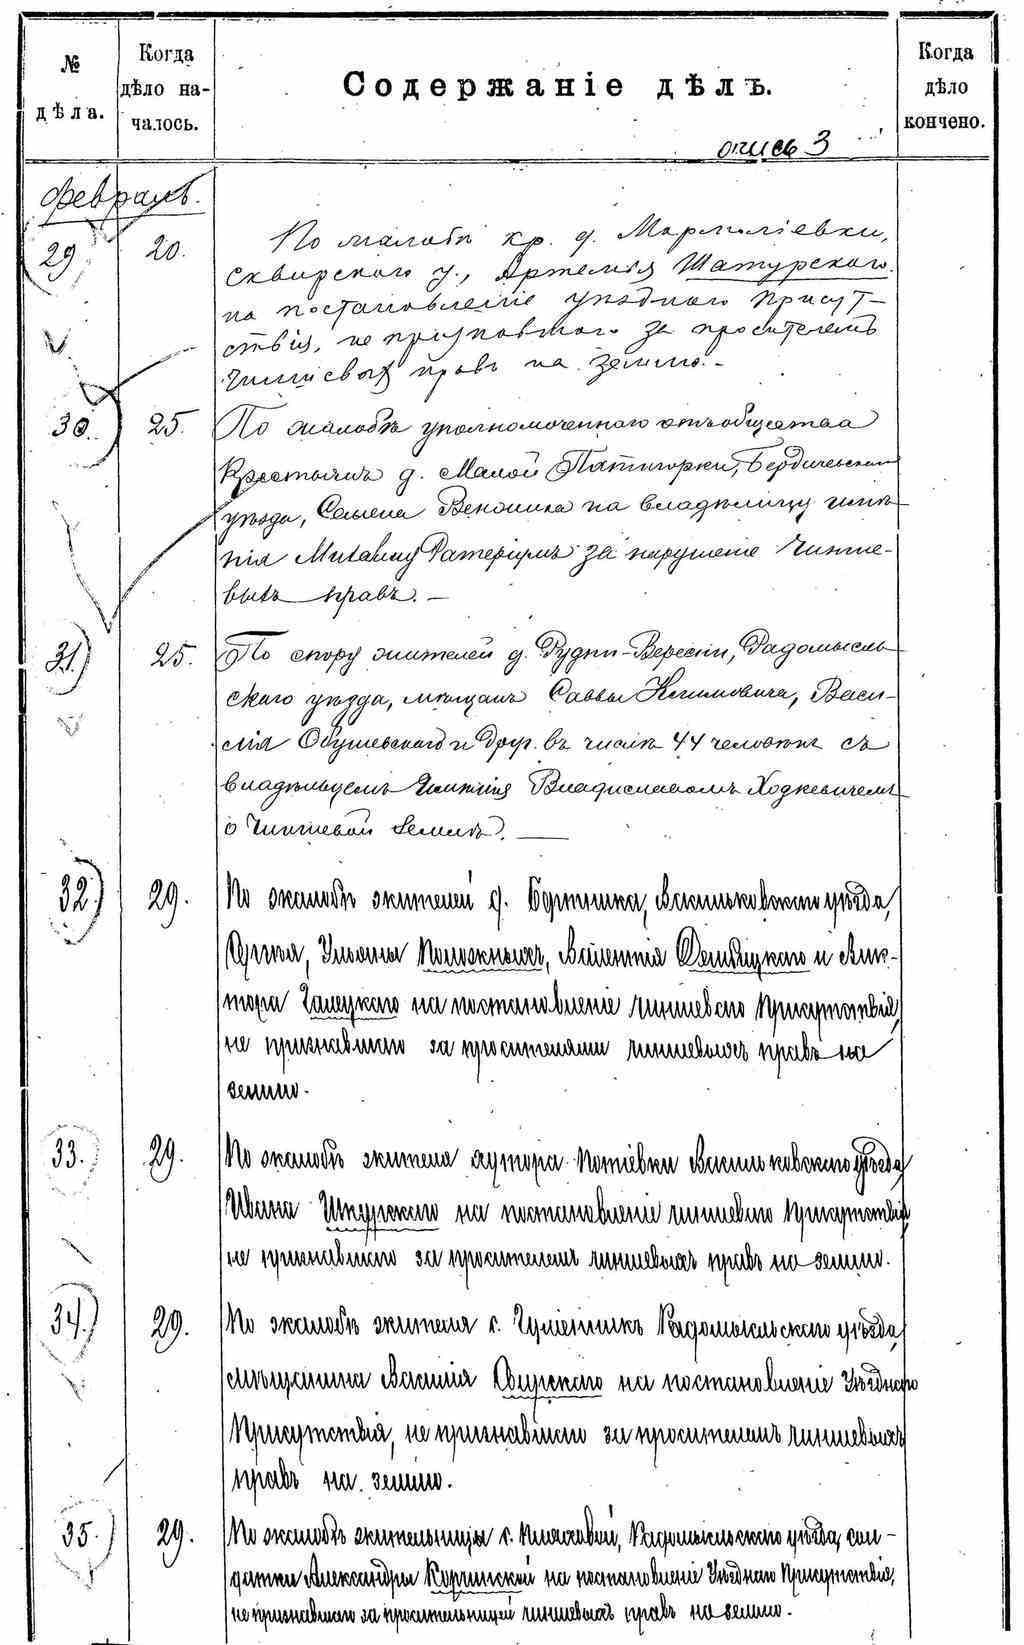 № дѣла.
Когда дѣло началось.
Содержаніе дѣлъ.
Когда дѣло кончено.
опись 3
Февраль.
29 20. По жалобѣ кр. д. Мармоліевки,
Сквирского у., Артемія Шатурского
на постановление уѣзднаго Присут-
ствія, не признавшаго за просителемъ
чиншевыхъ правъ на землю.-
30. 25. По жалобѣ уполномоченнаго отъ общества
Крестьянъ д. Малой Пятигорки, Бердичевскаго
уѣзда, Семена на владѣлицу имѣ-
нія за нарушеніе Чинше-
выхъ правъ.-
31. 25. По спору жителей д. Рудни-Вересни, Радомысль-
скаго уѣзда, мѣщанъ Саввы Климовича, Васи-
лія и друг. въ числѣ 44 человѣкъ съ
владѣльцемъ имѣнія Владиславомъ Ходкевичемъ
о Чиншевой Землѣ. —
32. 29. По жалобѣ жителей д. Васильковскаго уѣзда,
Ульяны и Вик-
тора Галецкаго на постановленіе чиншеваго Присутствія,
не признавшаго за просителями чиншевыхъ правъ на
землю.
33. 29. По жалобѣ жителя хутора Потіевки Васильковскаго уѣзда
Ивана Шкурскаго на постановленіе чиншеваго Присутствія,
не признавшаго за просителемъ чиншевыхъ правъ на землю.
34. 29. По жалобѣ жителя с. Радомысльскаго уѣзда,
мѣщанина Василія на постановленіе Уѣзднаго
Присутствія, не признавшаго за просителемъ чиншевыхъ
правъ на землю.
35. 29. По жалобѣ жительницы с. Радомысльскаго уѣзда, сол-
датки Александры на постановленіе Уѣзднаго Присутствія,
не признавшаго за просительницей чиншевыхъ правъ на землю.